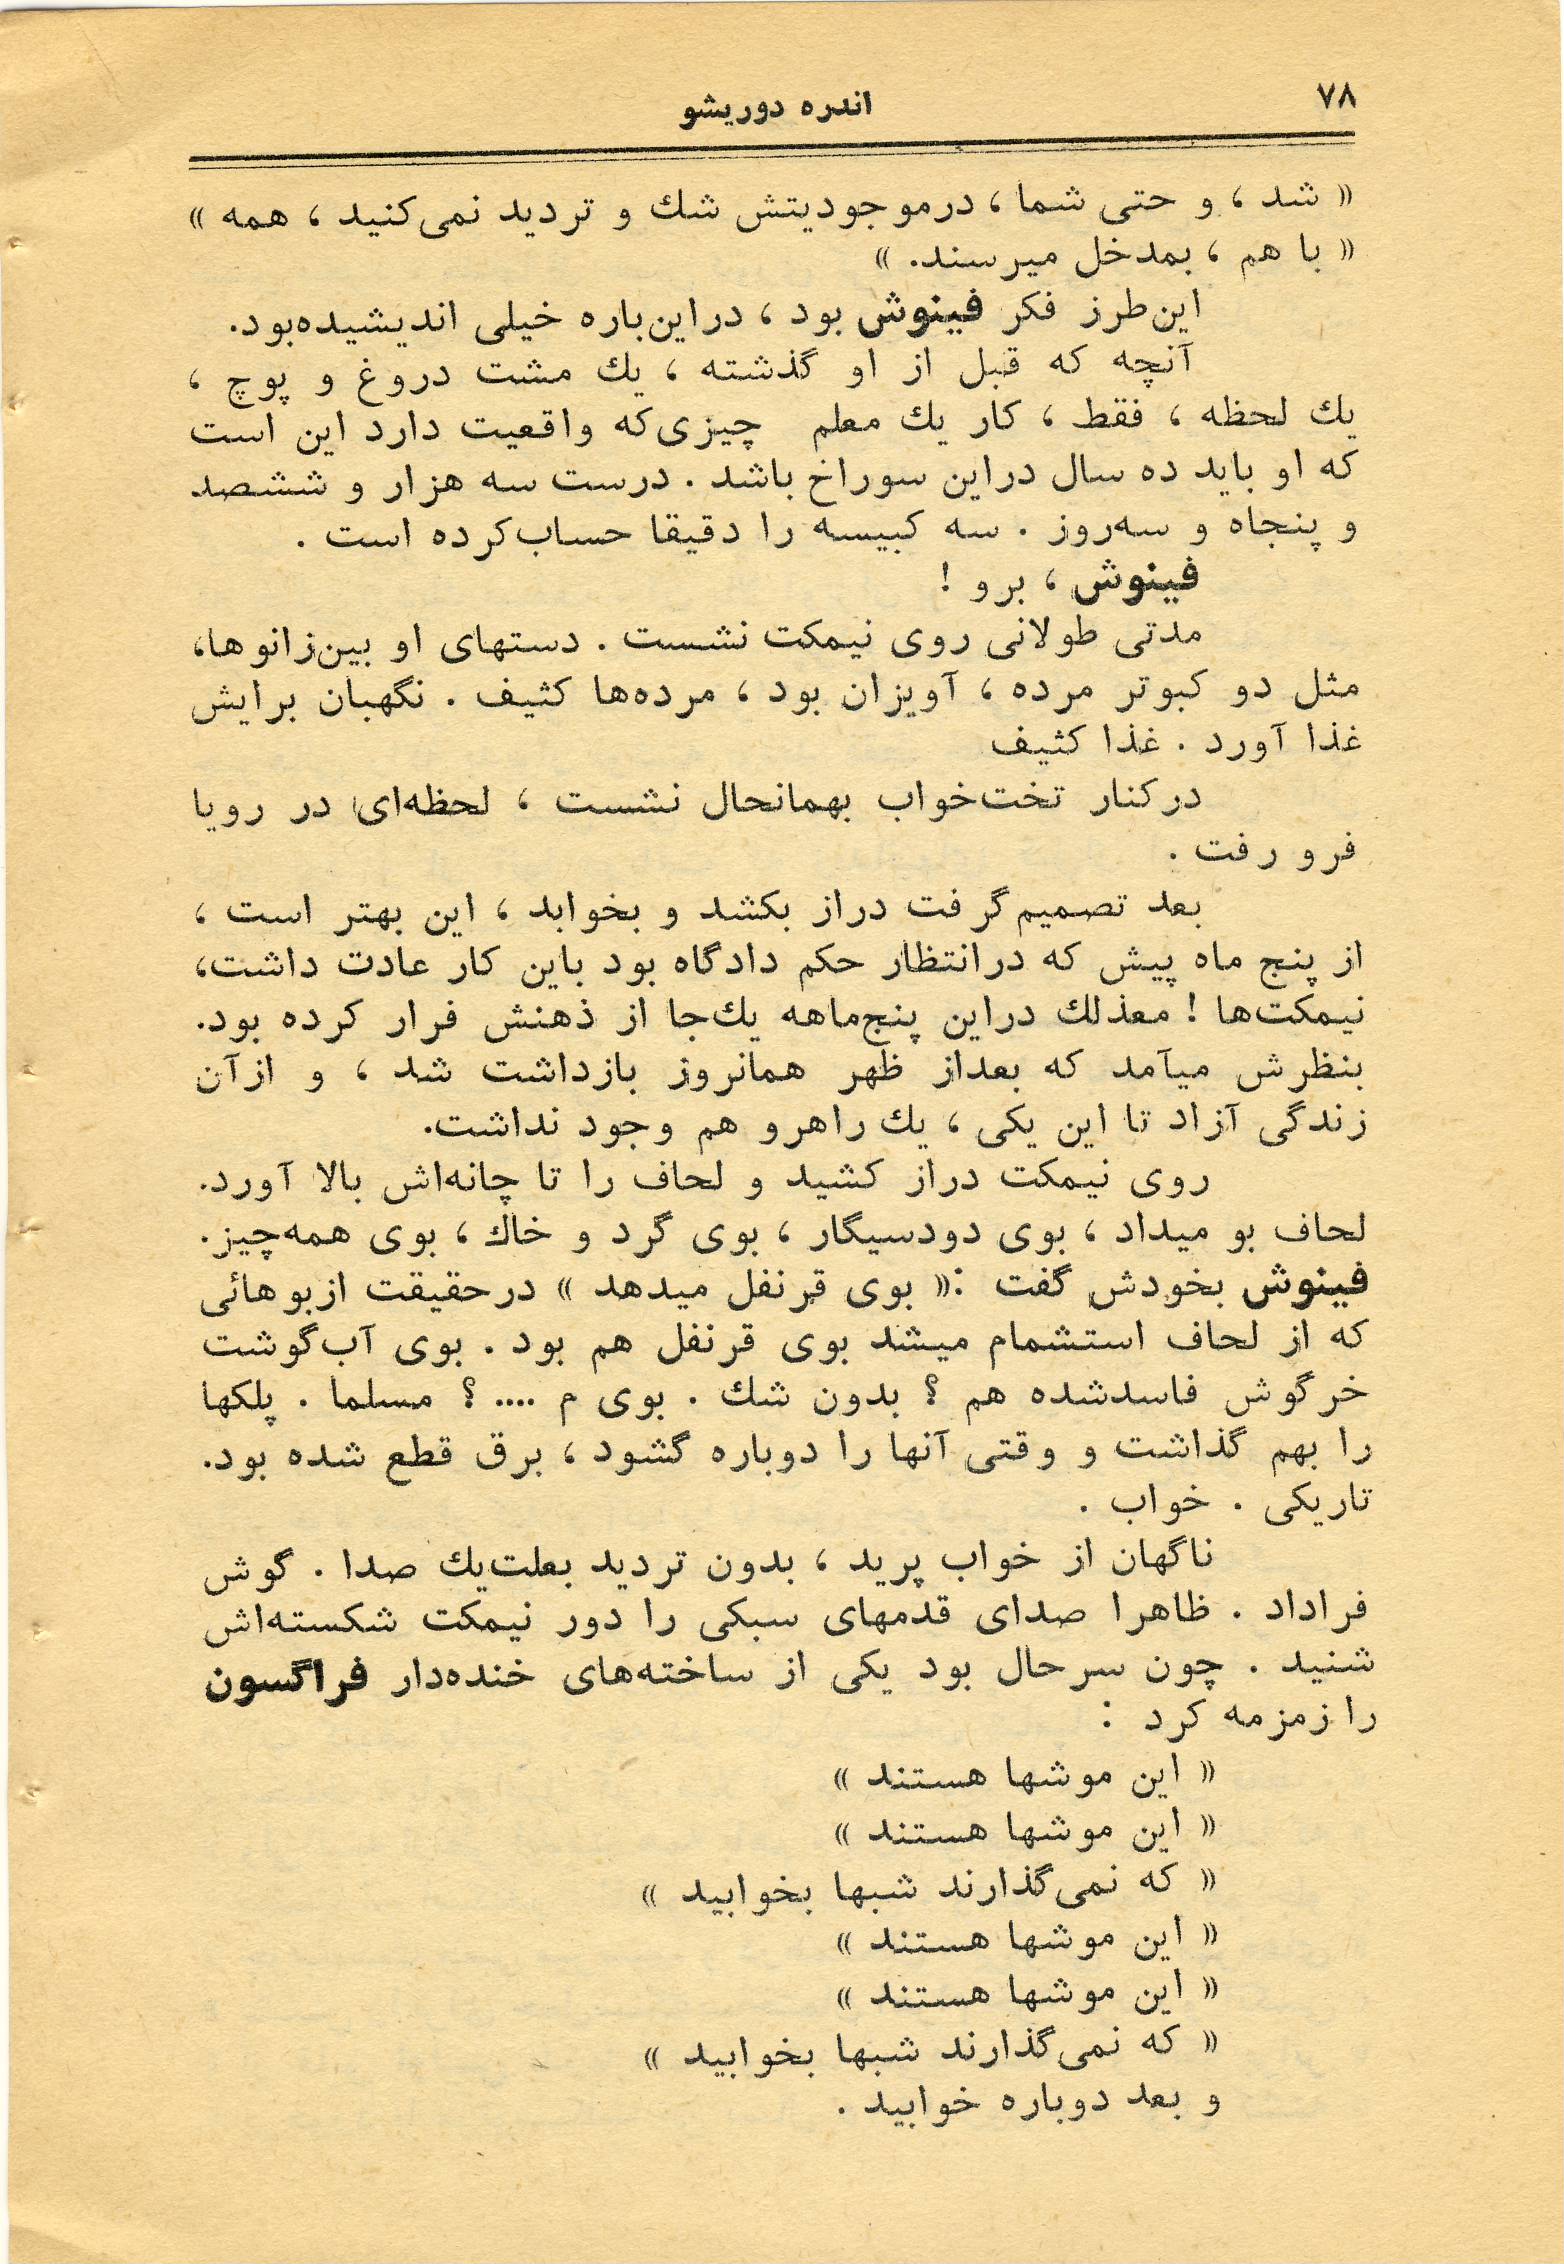 ۷۸
اندره دوریشو
« شد ، و حتی شما ، درموجودیتش شك و تردید نمی‌کنید ، همه »
« با هم ، بمدخل میرسند. »
این‌طرز فکر فینوش بود ، دراین‌باره خیلی اندیشیده‌بود.
آنچه که قبل از او گذشته ، یك مشت دروغ و پوچ ،
یك لحظه ، فقط ، کار یك معلم چیزی‌که واقعیت دارد این است
که او باید ده سال دراین سوراخ باشد . درست سه هزار و ششصد
و پنجاه و سه‌روز . سه کبیسه را دقیقا حساب‌کرده است .
فینوش ، برو !
مدتی طولانی روی نیمکت نشست . دستهای او بین‌زانوها،
مثل دو کبوتر مرده ، آویزان بود ، مرده‌ها کثیف . نگهبان برایش
غذا آورد . غذا کثیف
درکنار تخت‌خواب بهمانحال نشست ، لحظه‌ای در رویا
فرو رفت .
بعد تصمیم‌گرفت دراز بکشد و بخوابد ، این بهتر است ،
از پنج ماه پیش که درانتظار حکم دادگاه بود باین کار عادت داشت،
نیمکت‌ها ! معذلك دراین پنج‌ماهه یك‌جا از ذهنش فرار کرده بود.
بنظرش میآمد که بعداز ظهر همانروز بازداشت شد ، و ازآن
زندگی آزاد تا این یکی ، یك راهرو هم وجود نداشت.
روی نیمکت دراز کشید و لحاف را تا چانه‌اش بالا آورد.
لحاف بو میداد ، بوی دودسیگار ، بوی گرد و خاك ، بوی همه‌چیز.
فینوش بخودش گفت :« بوی قرنفل میدهد » درحقیقت ازبوهائی
که از لحاف استشمام میشد بوی قرنفل هم بود . بوی آب‌گوشت
خرگوش فاسدشده هم ؟ بدون شك . بوی م .... ؟ مسلما . پلکها
را بهم گذاشت و وقتی آنها را دوباره گشود ، برق قطع شده بود.
تاریکی . خواب .
ناگهان از خواب پرید ، بدون تردید بعلت‌یك صدا . گوش
فراداد . ظاهرا صدای قدمهای سبکی را دور نیمکت شکسته‌اش
شنید . چون سرحال بود یکی از ساخته‌های خنده‌دار فراگسون
را زمزمه کرد :
« این موشها هستند »
« این موشها هستند »
« که نمی‌گذارند شبها بخوابید »
« این موشها هستند »
« این موشها هستند »
« که نمی‌گذارند شبها بخوابید »
و بعد دوباره خوابید .